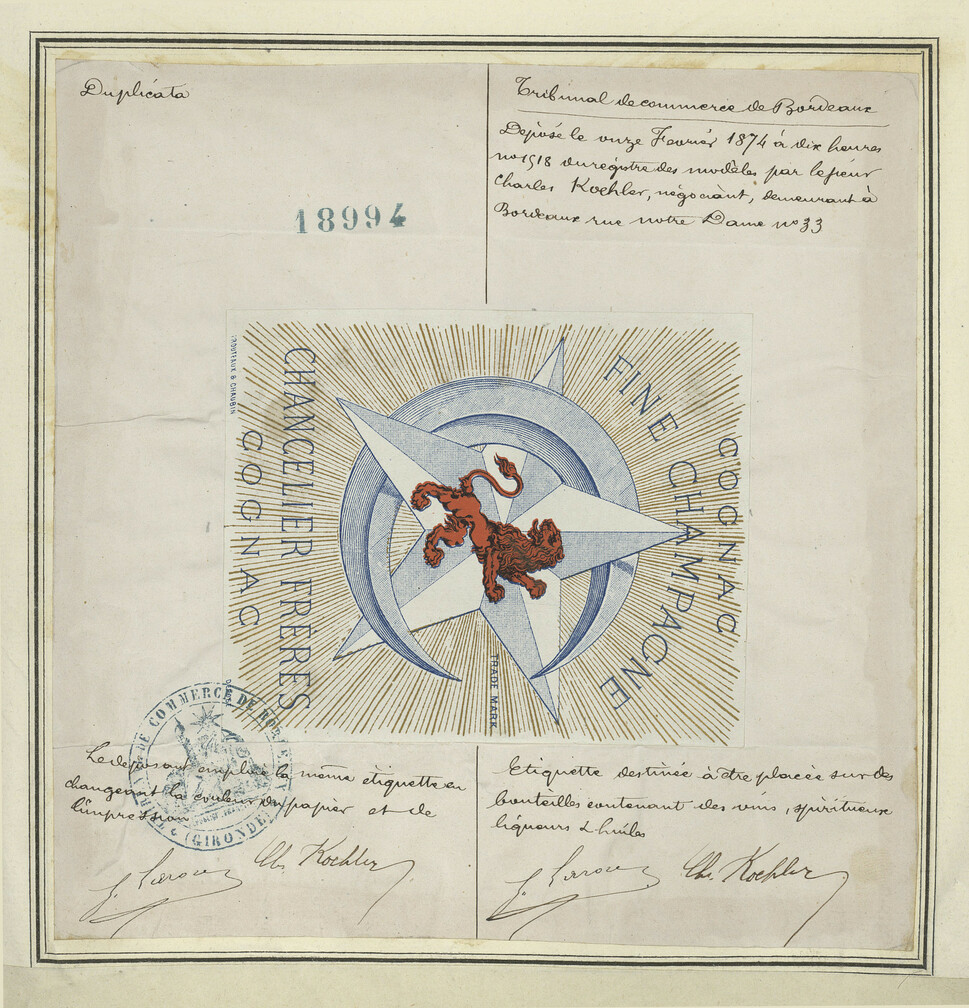 Duplicata
18994
Tribunal de commerce de Bordeaux
Déposé le onze Fevrier 1874 à dix heures
no 1518 du registre des modèles par le sieur
Charles Koehler, négociant, demeurant à
Bordeaux rue notre Dame no 33
FINE CHAMPAGNE
COGNAC
CHANCELIER FRERES
COGNAC
TRADE MARK
& CHAUBIN
DE COMMERCE DE
(GIRONDE)
Le deposant emploie la même étiquette en
changeant la couleur du papier et de
l'impression
Etiquette destinée à être placée sur des
bouteilles contenant des vins, spiritueux
liqueurs & huiles
Ch. Koehler
Ch. Koehler